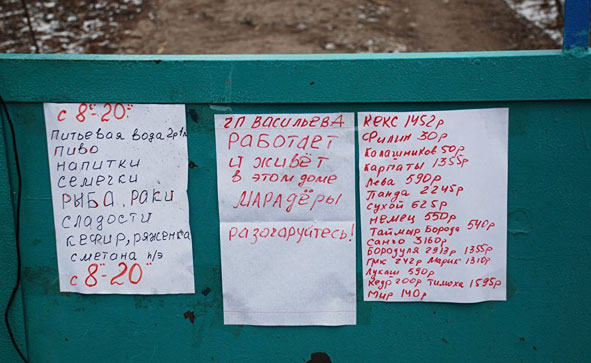 с 8⁰⁰-20⁰⁰
питьевая вода 2р 1л
пиво
напитки
семечки
РЫБА, РАКИ
сладости
кефир, ряженка
сметона п/э
с 8⁰⁰-20⁰⁰
ЧП ВАСИЛЬЕВА
Работает
и живёт
в этом доме
МАРАДЁРЫ
разачаруйтесь!
КЕКС 1452р
Филин 30р
Калашников 50р
Карпаты 1355р
Лева 590р
Панда 2245р
Сухой 625р
Немец 550р
Таймыр Борода 540р
Санчо 3160р
Бородуля 2913р 1355р
Гмк 242р Марик 1310р
Лукаш 590р
Кедр 200р Тимоха 1595р
Мир 140р